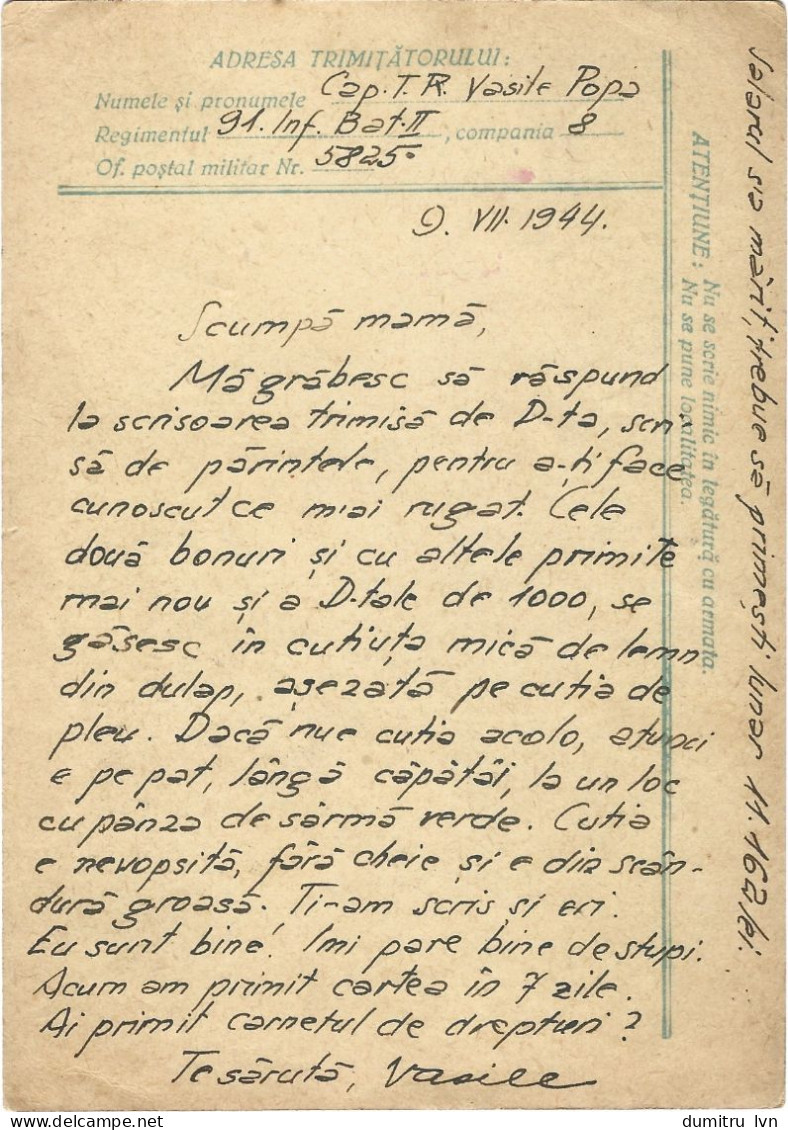 ADRESA TRIMIȚĂTORULUI:
Numele și pronumele Cap. T.R. Vasile Popa
Regimentul 91. Inf. Bat. II, compania 8
Of. poștal militar Nr. 5825.
9. VII. 1944.
Scumpă mamă,
Mă grăbesc să răspund
la scrisoarea trimisă de D-ta, scri-
să de părintele, pentru a-ți face
cunoscut ce m-ai rugat. Cele
două bonuri și cu altele primite
mai nou și a D-tale de 1000, se
găsesc în cutiuța mică de lemn
din dulap, așezată pe cutia de
pleu. Dacă nu e cutia acolo, atunci
e pe pat, lângă căpătâi, la un loc
cu pânza de sârmă verde. Cutia
e nevopsită, fără cheie și e din scân-
dură groasă. Ți-am scris și eri.
Eu sunt bine! Imi pare bine de stupi.
Acum am primit cartea în 7 zile.
Ai primit carnetul de drepturi?
Te sărută, Vasile
ATENȚIUNE: Nu se scrie nimic în legătură cu armata.
Nu se pune localitatea.
Salarul s'a mărit, trebue să primești lunar 11.162 lei.
dumitru lvn